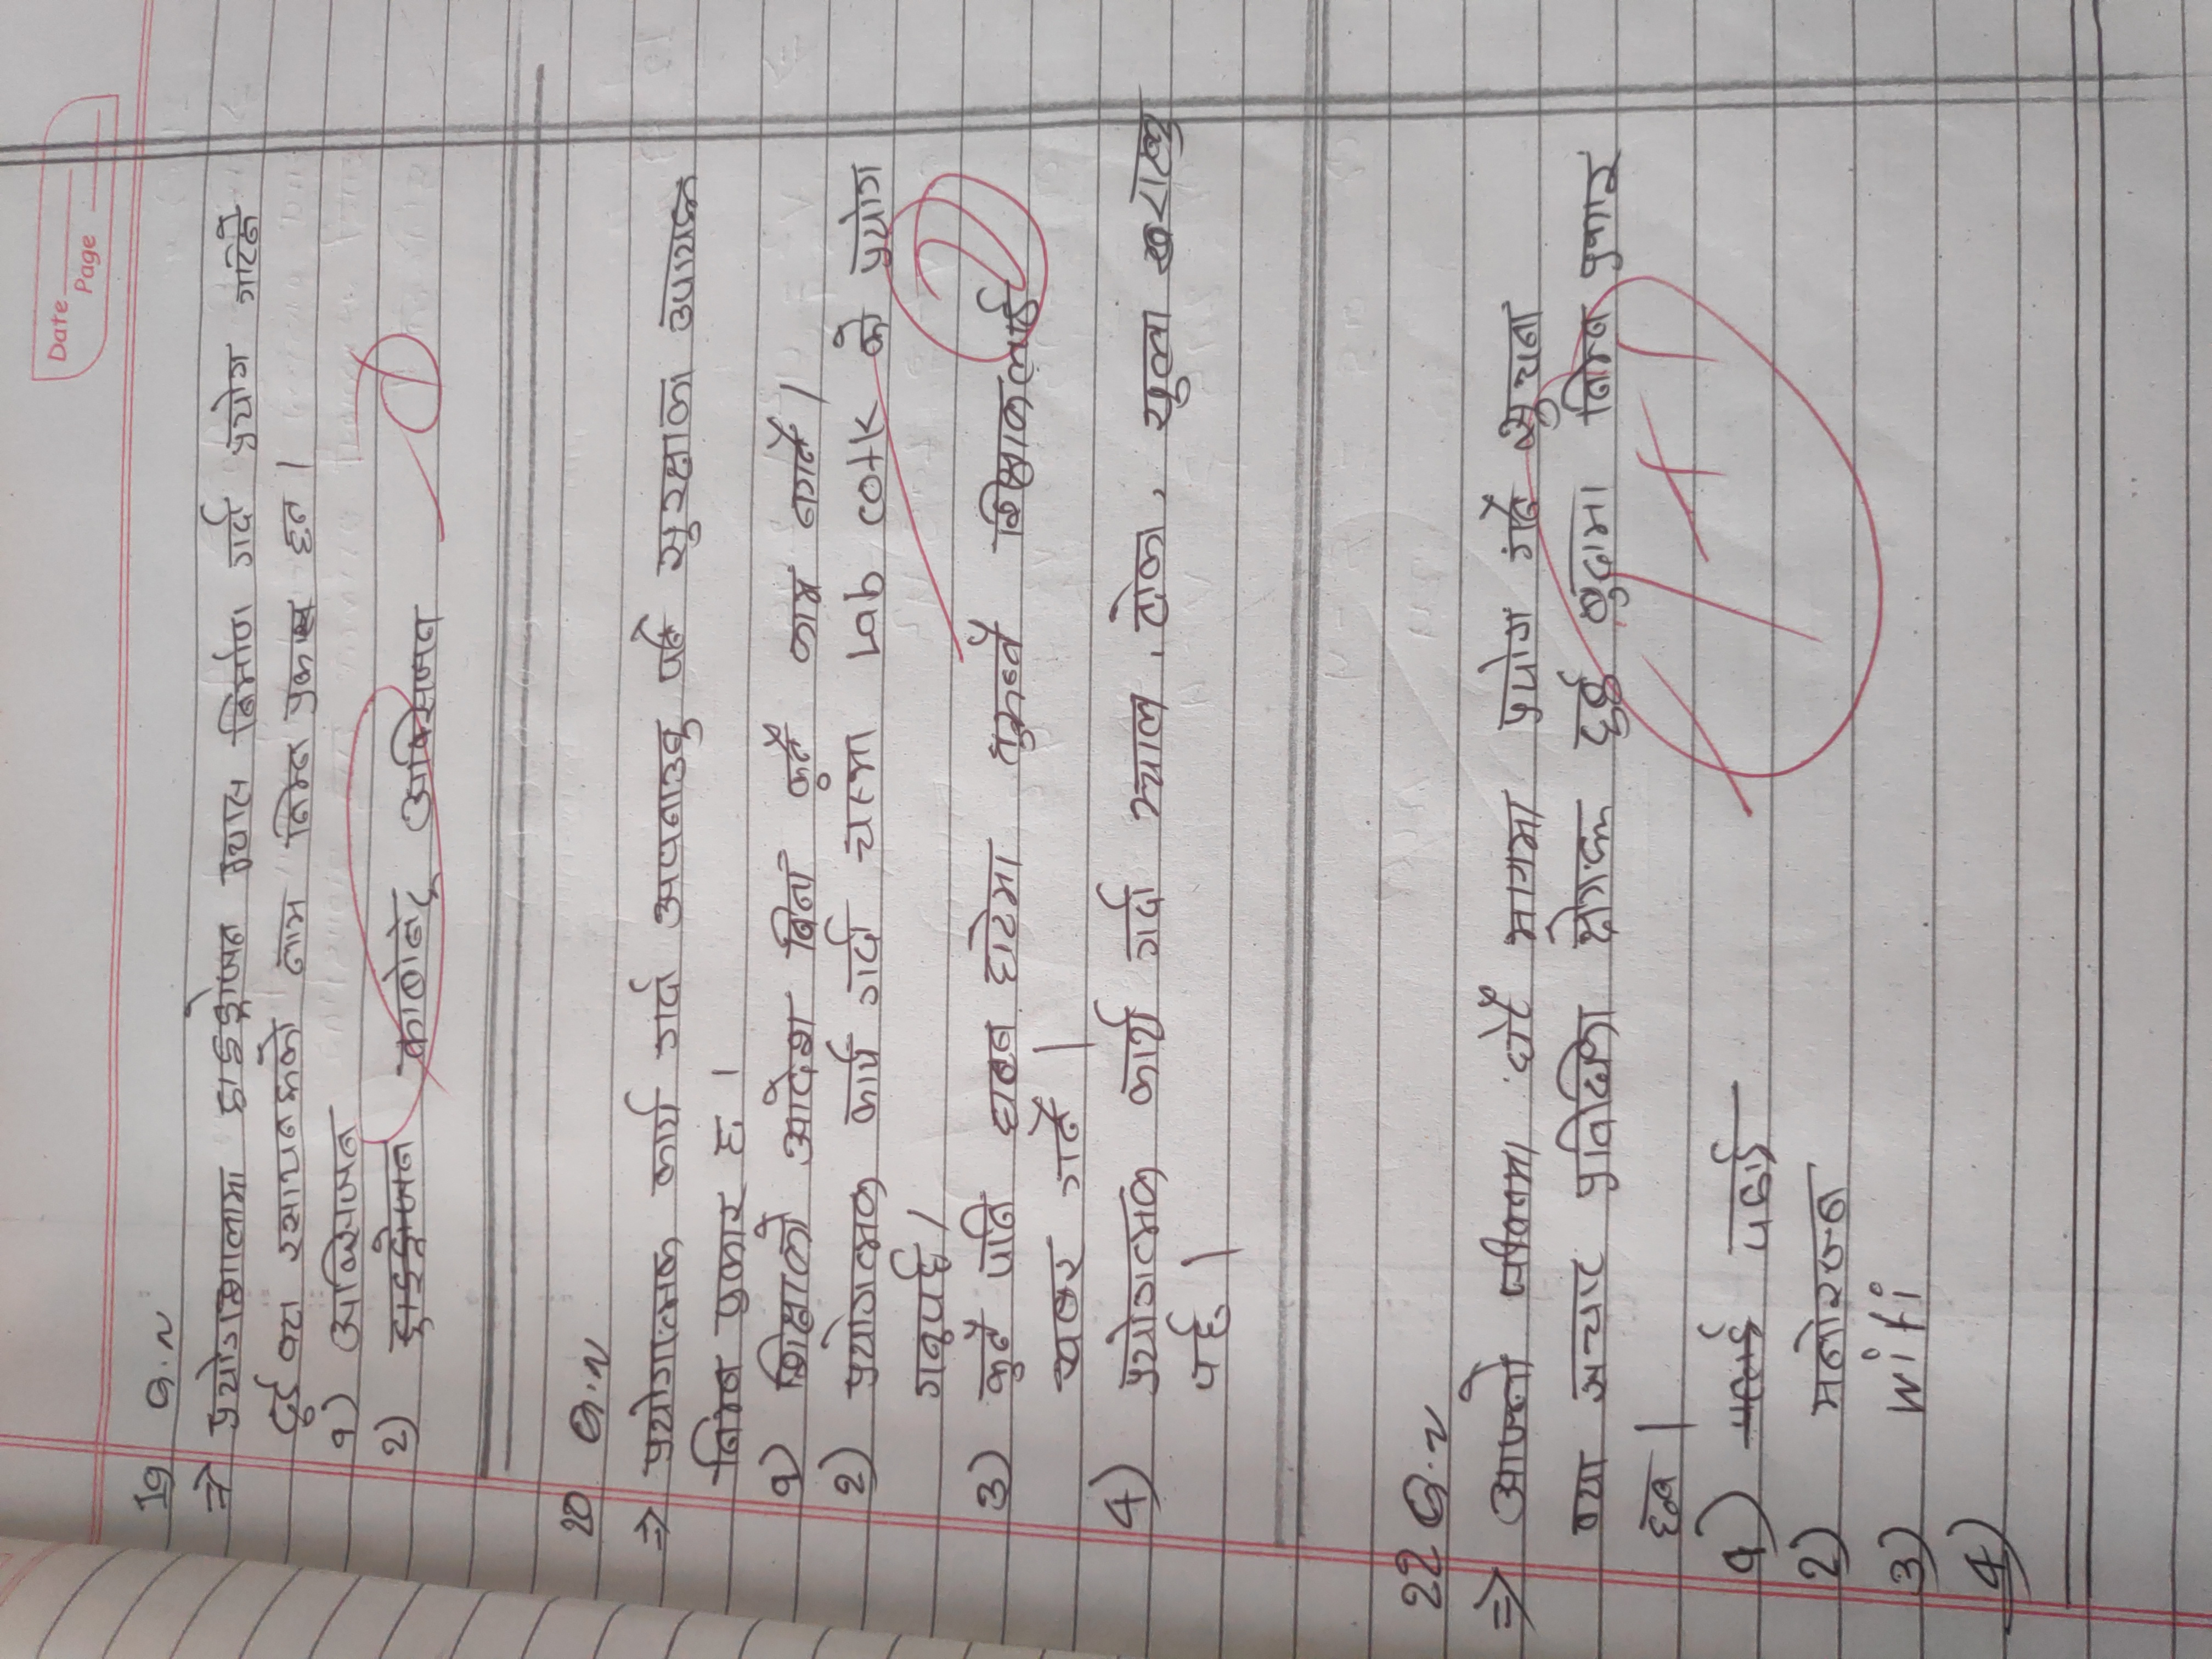 Date
Page
19 Q.N
⇒ प्रयोगशालामा हाइड्रोजन ग्यास निर्माण गर्दा प्रयोग गरिने
दुई वटा रसायनहरुको नाम निम्न प्रकार छन ।
१) अक्सिजन
२) हाइड्रोजन कार्बोनेट अक्सिजन
1
20 Q.N
⇒ प्रयोगात्मक कार्य गर्दा अपनाउनु पर्ने सुरक्षाका उपायहरु
निम्न प्रकार छ ।
१) शिक्षाको आदेश बिना कुनै काम नगर्ने ।
२) प्रयोगत्मक कार्य गर्दा चस्मा Lab cotk को प्रयोग
गनुपर्छ ।
3) कुनै पनि घटना घटेमा तुरुन्तै शिक्षाकलाई
2
खबर गर्ने ।
4) प्रयोगत्मक कार्य गर्दा झ्याल, ढोका, खुल्ला राख्नु
पर्छ ।
22 Q.N
⇒ आफ्नो जीवनमा धेरै मागमा प्रयोग गर्ने सुचना
तथा सञ्चार प्रविधिका क्षेत्रहरु दुई बुदामा निम्न प्रकार
छन ।
1+1
१) पढाई
2) मनोरञ्जन
3) wifi
4)